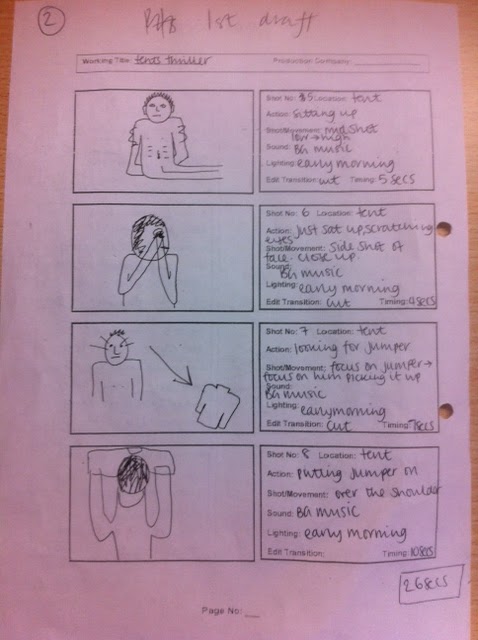 2 1st draft
Working Title: thriller Production Company:
Shot No: 5 Location: tent
Action: sitting up
Shot/Movement: mid shot
low → high
Sound: BG music
Lighting: early morning
Edit Transition: cut Timing: 5 secs
Shot No: 6 Location: tent
Action: Just sat up, scratching
eyes
Shot/Movement: side shot of
face. close up.
Sound:
BG music
Lighting: early morning
Edit Transition: cut Timing: 4 secs
Shot No: 7 Location: tent
Action: looking for jumper
Shot/Movement: focus on jumper →
focus on him picking it up
Sound:
BG music
Lighting: early morning
Edit Transition: cut Timing: 7 secs
Shot No: 8 Location: tent
Action: putting jumper on
Shot/Movement: over the shoulder
Sound: BG music
Lighting: early morning
Edit Transition: Timing: 10 secs
26 secs
Page No: